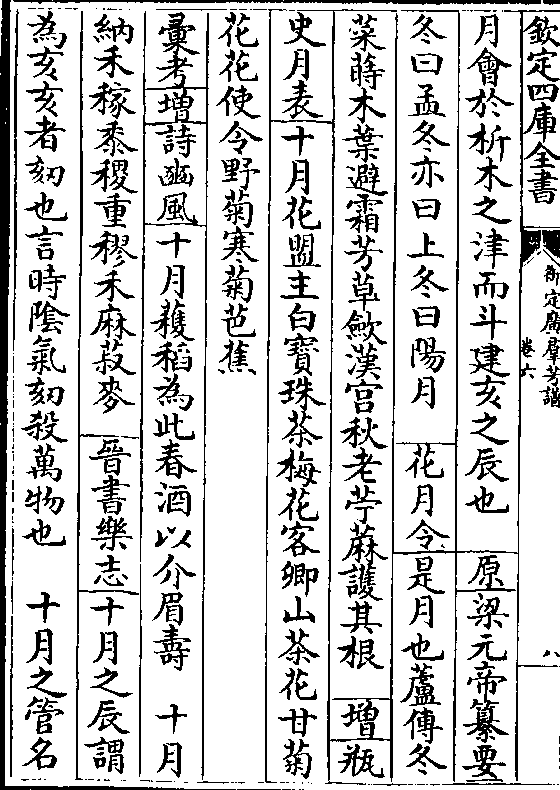 欽定四庫全書
御定廣群芳譜
卷六
八
月會於析木之津而斗建亥之辰也　原梁元帝纂要
冬曰孟冬亦曰上冬曰陽月　花月令是月也蘆傳冬
菜蒔木葉避霜芳草歛漢宫秋老苧蔴護其根　増瓶
史月表十月花盟主白寳珠茶梅花客卿山茶花甘菊
花花使令野菊寒菊芭蕉
彙考増詩豳風十月穫稻為此春酒以介眉壽　十月
納禾稼黍稷重穋禾麻菽麥　晉書樂志十月之辰謂
為亥亥者刻也言時陰氣刻殺萬物也　十月之管名